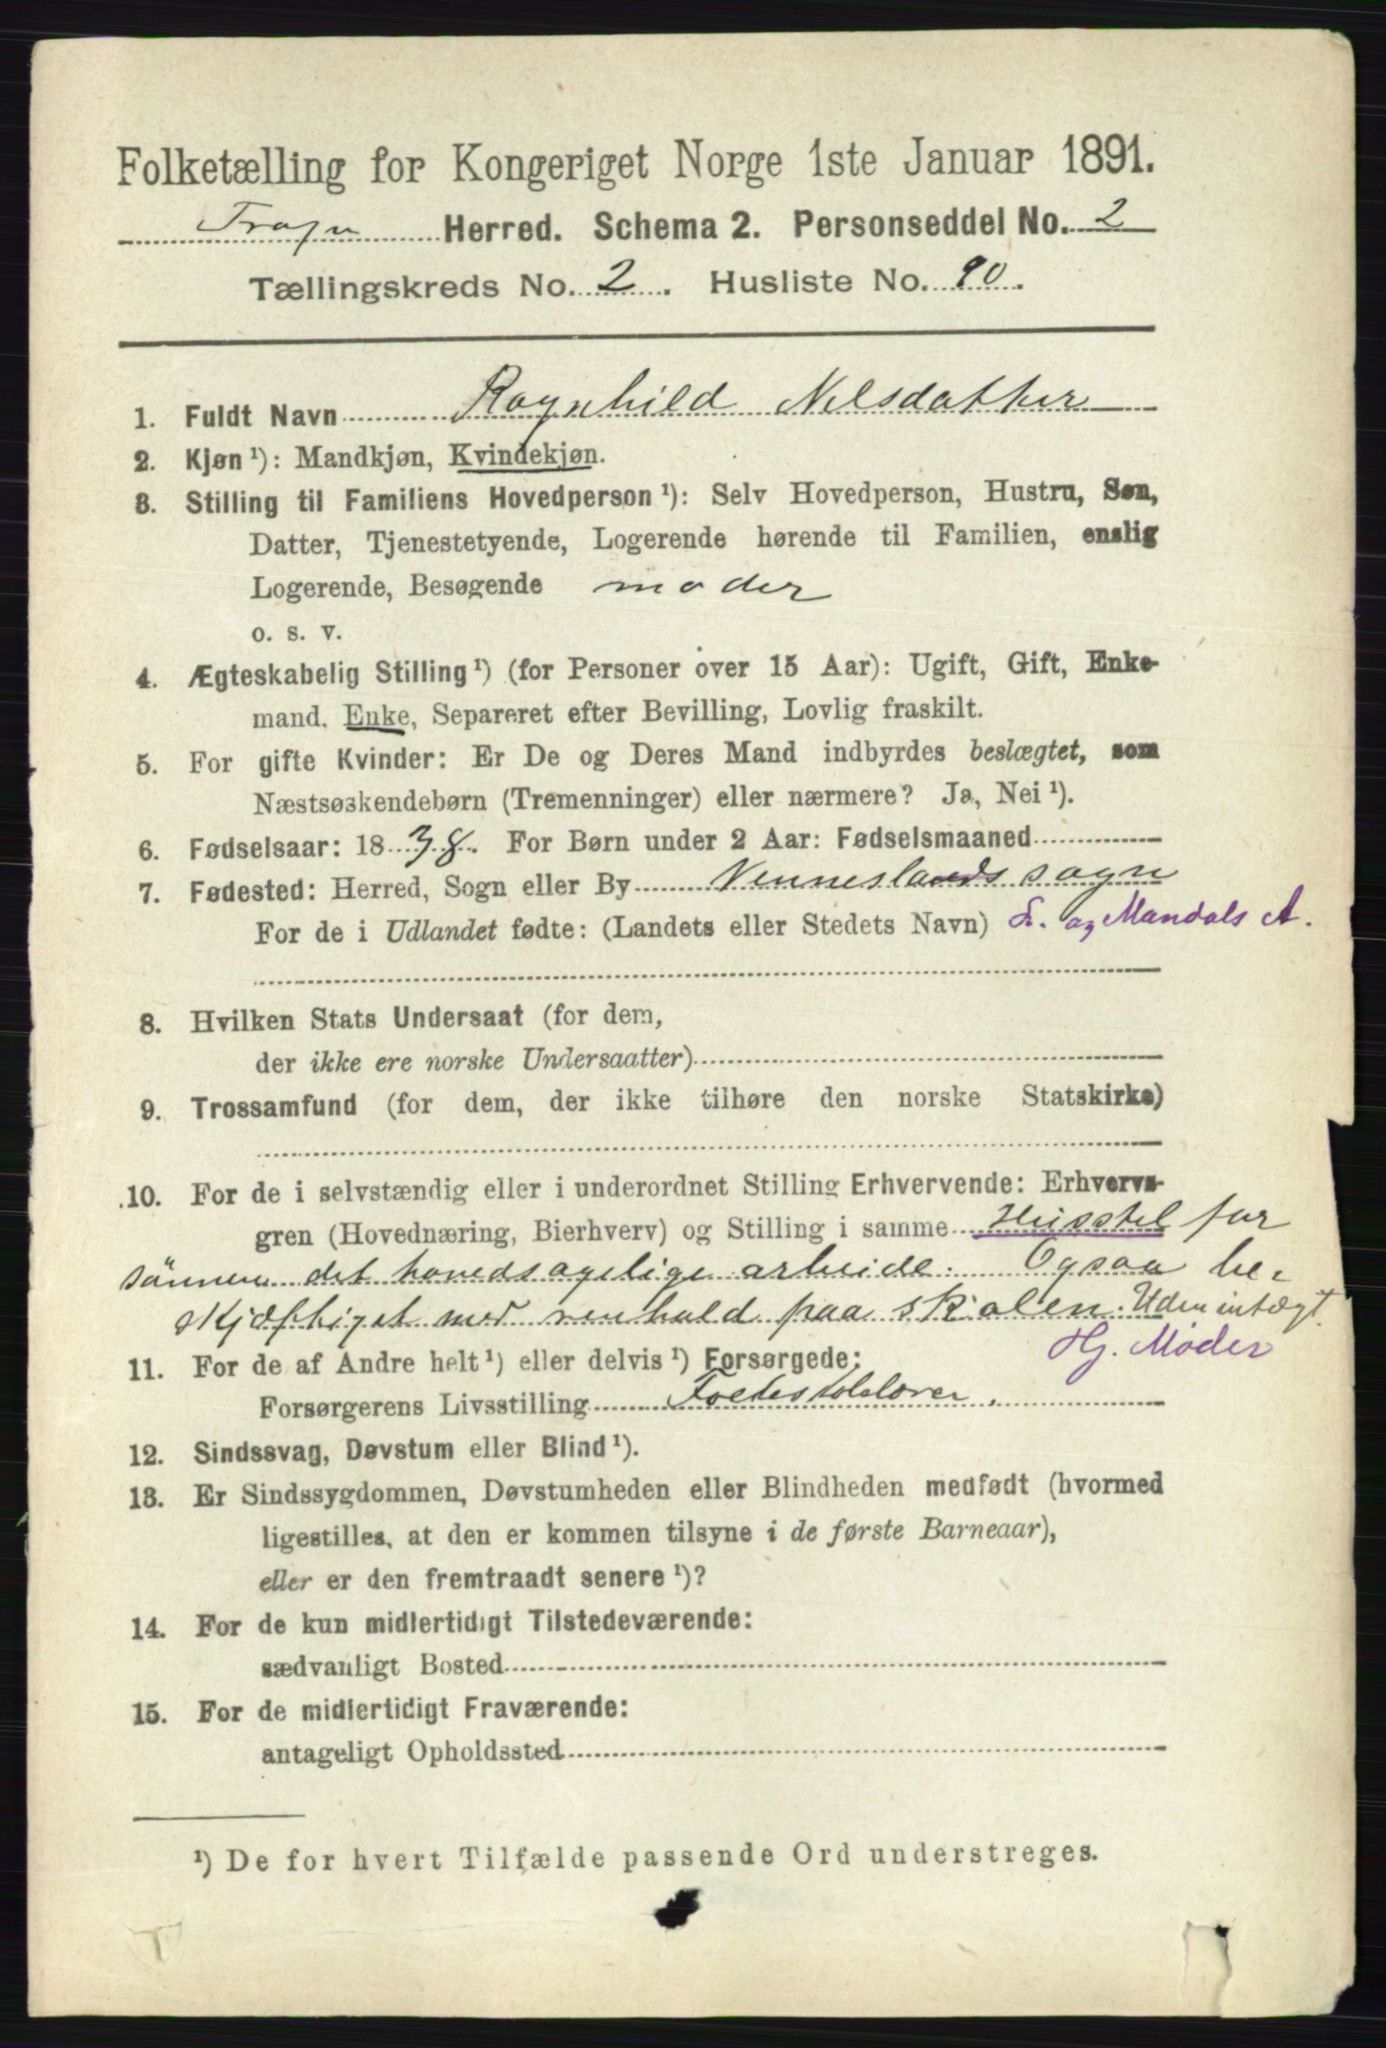 Folketælling for Kongeriget Norge 1ste Januar 1891.
Herred. Schema 2. Personseddel No. 2
Tællingskreds No. 2. Husliste No. 90.
1. Fuldt Navn Ragnhild Nelsdatter
2. Kjøn ¹): Mandkjøn, Kvindekjøn.
3. Stilling til Familiens Hovedperson ¹): Selv Hovedperson, Hustru, Søn,
Datter, Tjenestetyende, Logerende hørende til Familien, enslig
Logerende, Besøgende moder
o. s. v.
4. Ægteskabelig Stilling ¹) (for Personer over 15 Aar): Ugift, Gift, Enke-
mand, Enke, Separeret efter Bevilling, Lovlig fraskilt.
5. For gifte Kvinder: Er De og Deres Mand indbyrdes beslægtet, som
Næstsøskendebørn (Tremenninger) eller nærmere? Ja, Nei ¹).
6. Fødselsaar: 1838. For Børn under 2 Aar: Fødselsmaaned
7. Fødested: Herred, Sogn eller By Venneslands sogn
For de i Udlandet fødte: (Landets eller Stedets Navn) L. og Mandals A.
8. Hvilken Stats Undersaat (for dem,
der ikke ere norske Undersaatter)
9. Trossamfund (for dem, der ikke tilhøre den norske Statskirke)
10. For de i selvstændig eller i underordnet Stilling Erhvervende: Erhvervs-
gren (Hovednæring, Bierhverv) og Stilling i samme Husstel for
sønnen det hovedsagelige arbeide. Ogsaa be-
skjæftiget med renhold paa skolen. Uden intægt
Hj. Moder
11. For de af Andre helt ¹) eller delvis ¹) Forsørgede:
Forsørgerens Livsstilling
12. Sindssvag, Døvstum eller Blind ¹).
13. Er Sindssygdommen, Døvstumheden eller Blindheden medfødt (hvormed
ligestilles, at den er kommen tilsyne i de første Barneaar),
eller er den fremtraadt senere ¹)?
14. For de kun midlertidigt Tilstedeværende:
sædvanligt Bosted
15. For de midlertidigt Fraværende:
antageligt Opholdssted
¹) De for hvert Tilfælde passende Ord understreges.